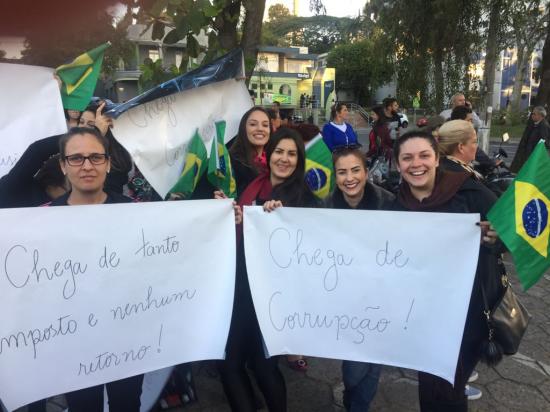 Chega de tanto
imposto e nenhum
retorno!
Chega de
Corrupção!
Chega